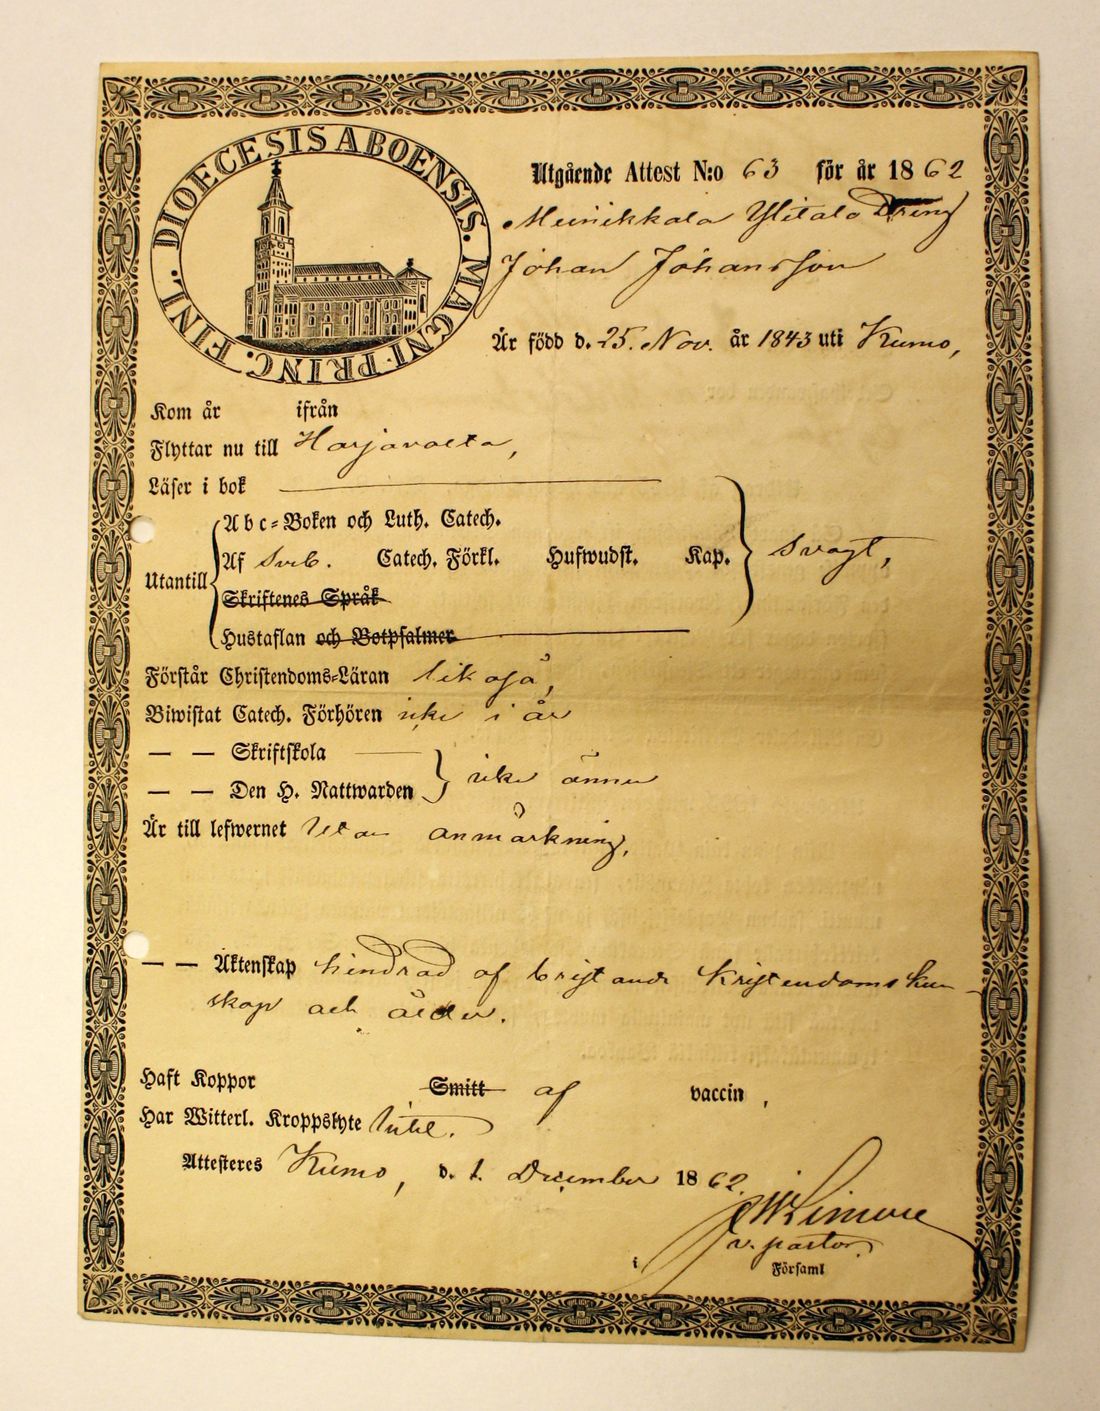 DIOECESIS ABOENSIS. MAGNI. PRINC. FINL.
Utgående Attest N:o 63 för år 1862
Meinikkala Ylitalo Dreng
Johan Johansson
Är född d. 25. Nov. år 1843 uti Kumo,
Kom år ifrån
Flyttar nu till Harjavalta,
Läser i bok
Utantill
Abc=Boken och Luth. Catech.
Af Svib. Catech. Förkl. Hufwudst. Kap. svagt,
Skriftenes Språk
Hustaflan och Botpsalmer
Förstår Christendoms=Läran likaså,
Biwistat Catech. Förhören icke i år
— — Skriftskola
— — Den H. Nattwarden icke ännu
Är till lefwernet Utan anmärkning,
— — Äktenskap hindrad af bristande Kristendomskun-
skap och ålder.
Haft Koppor Smitt af vaccin,
Har Witterl. Kroppslyte intet.
Attesteres Kumo, d. 1. December 1862.
v. pastor.
i Församl